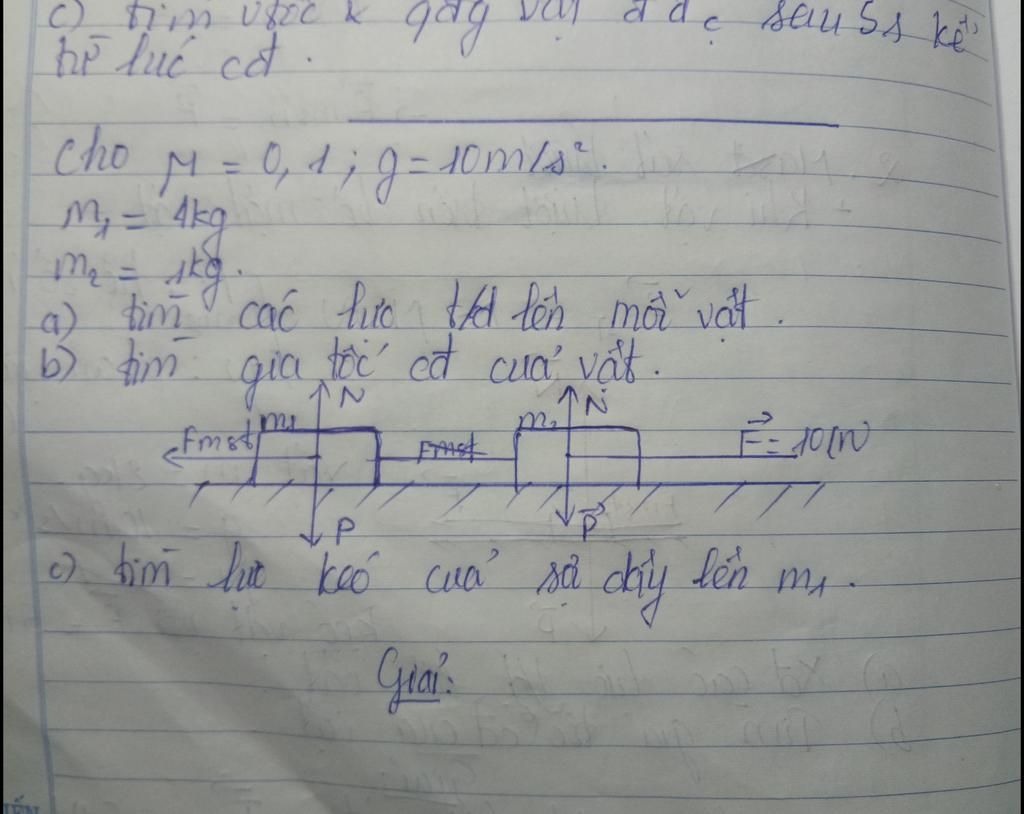 c) tìm vtốc k gđg vật đ đ c sau 5s kể
từ lúc cđ.
Cho μ = 0,1; g = 10m/s².
m₁ = 4kg
m₂ = 1kg.
a) tìm các lực t/d lên mỗi vật.
b) tìm gia tốc cđ của vật.
N N
m₁ m₂
Fmst Fmst F = 10(N)
P P
c) tìm lực kéo của sợi dây lên m₁.
Giải: